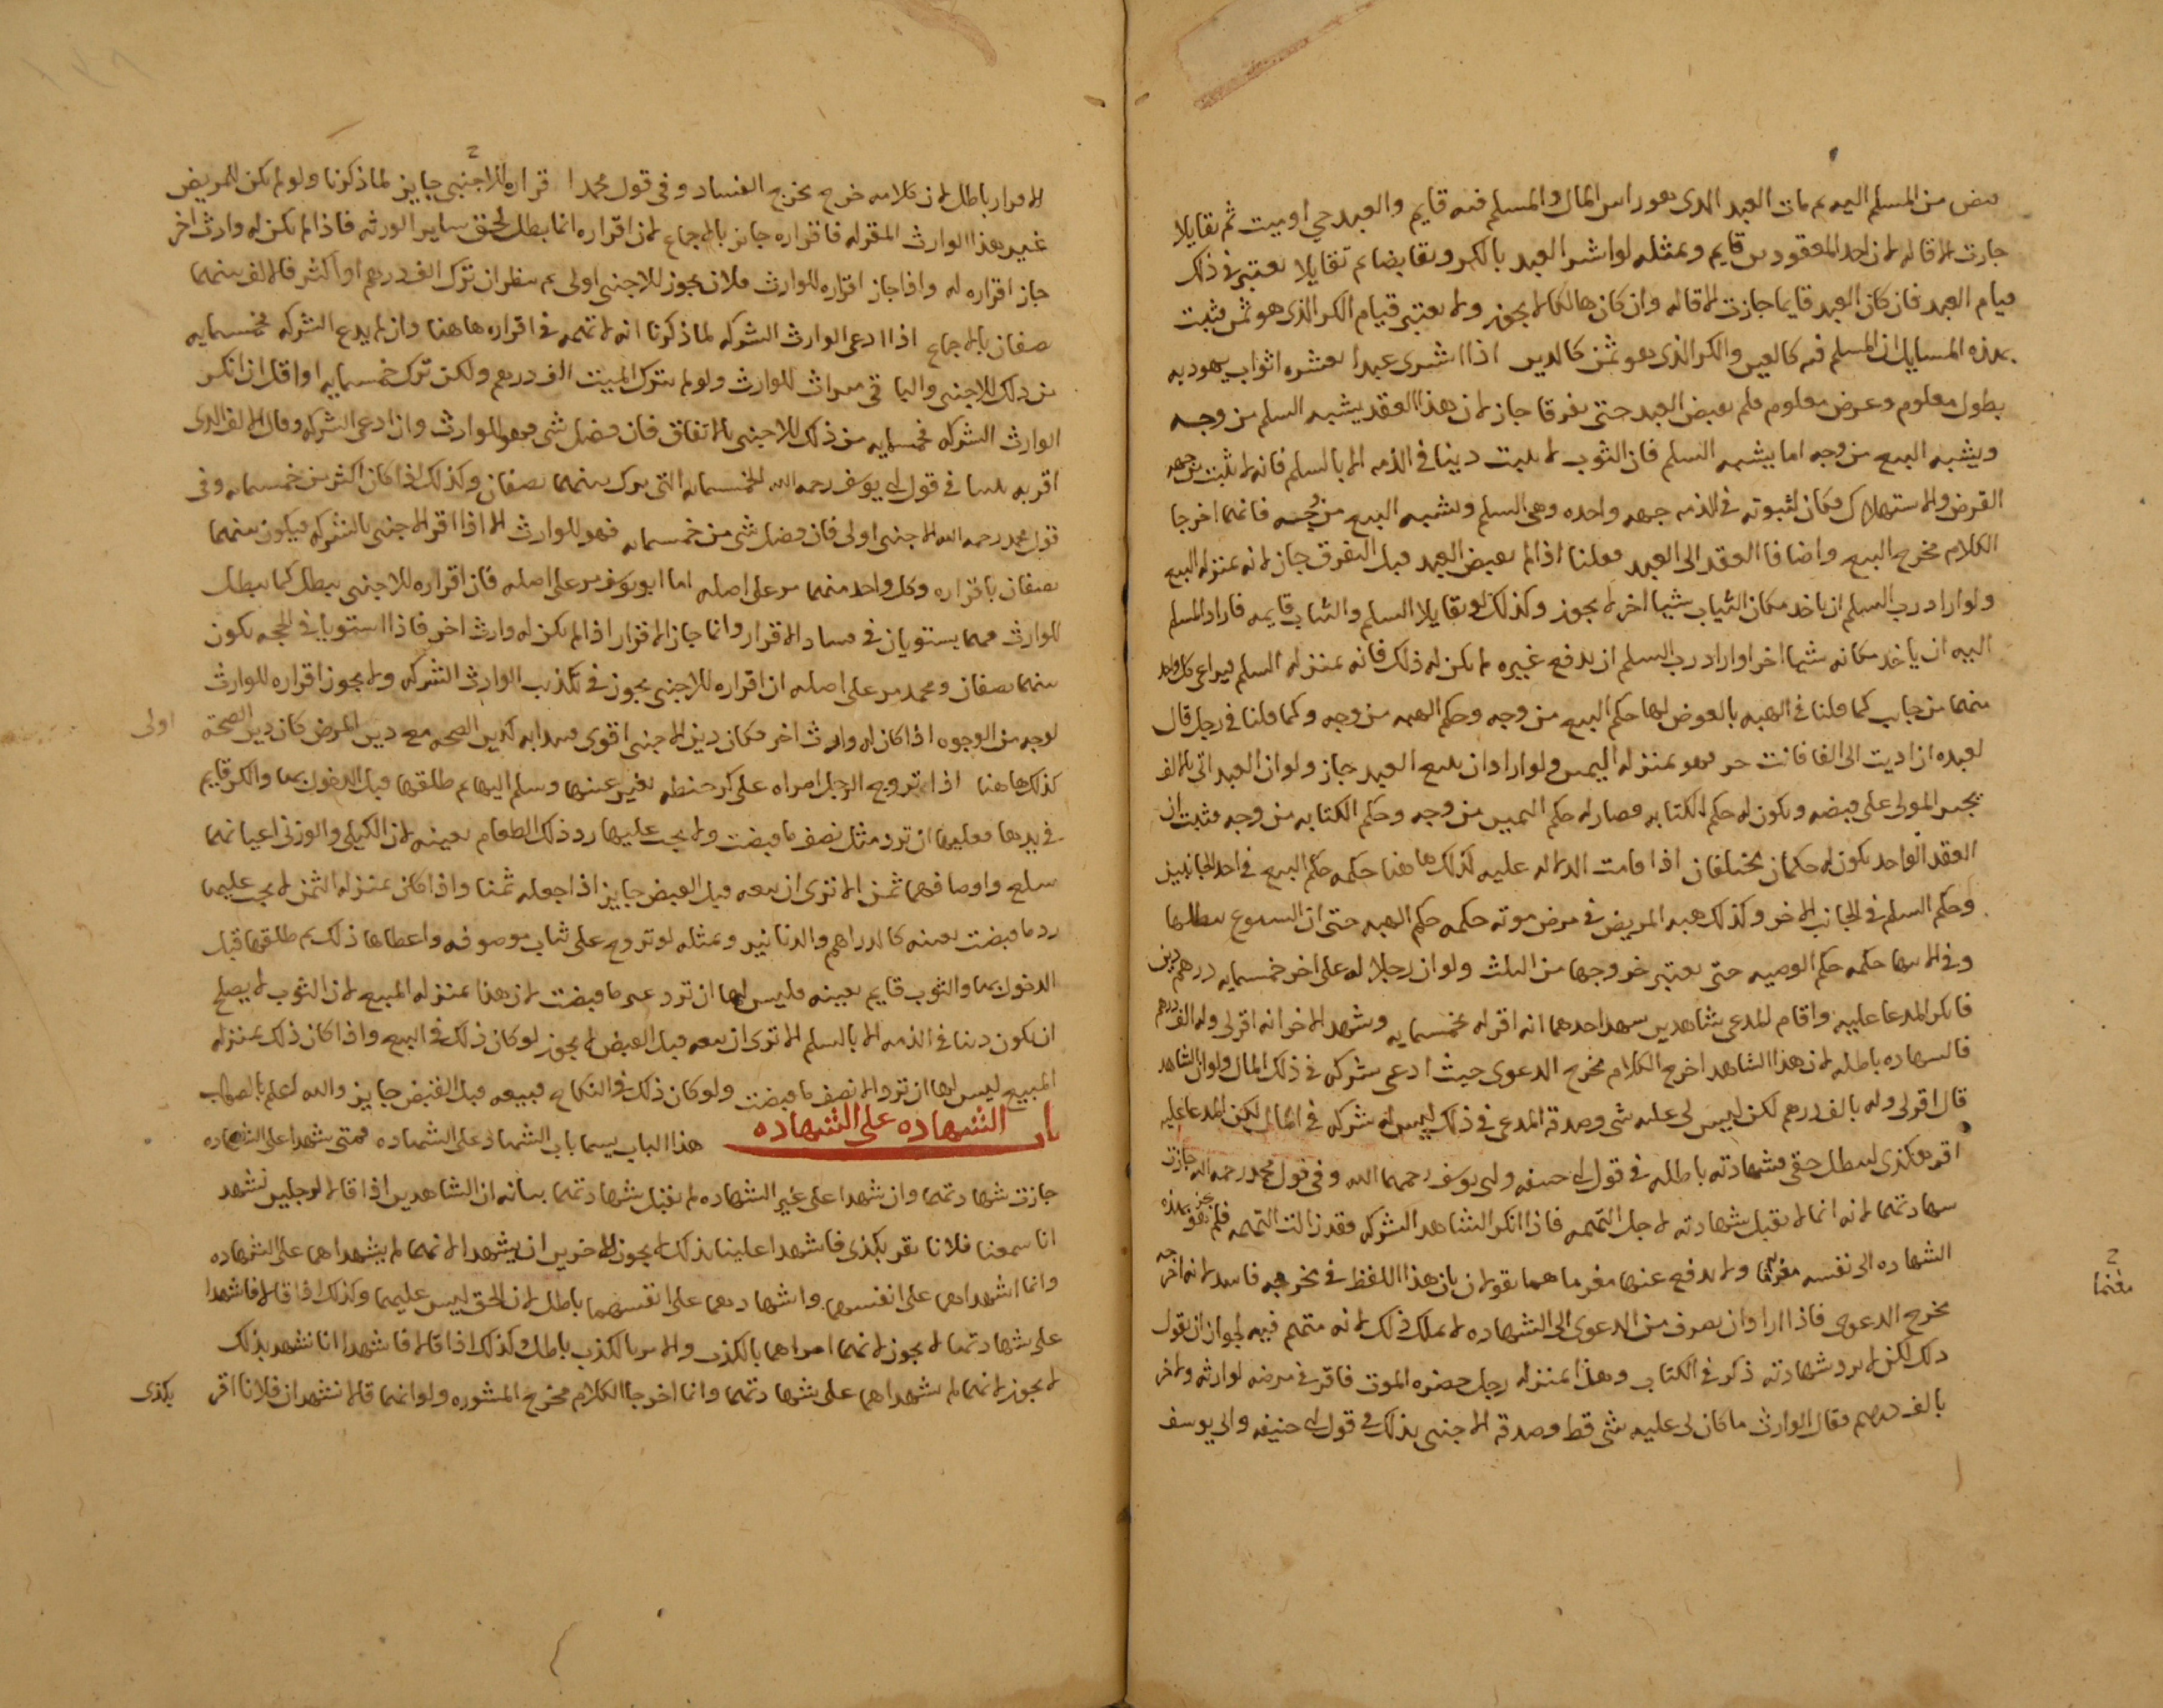 قبض من المسلم اليه ثم مات العبد الذى هو راس المال والمسلم فيه قايم والعبد حي او ميت ثم تقايلا
جازت الاقاله لان احد المعقودين قايم وبمثله لو اشترا العبد بالكر وتقابضا ثم تقايلا يعتبر فى ذلك
قيام العبد فان كان العبد قايما جازت الاقاله وان كان هالكا لا يجوز ولا يعتبر قيام الكر الذى هو ثمن فثبت
بهذه المسايل ان المسلم فيه كالعين والكر الذى هو ثمن كالدين اذا اشترى عبدا بعشره اثواب يهوديه
بطول معلوم وعرض معلوم فلم يقبض العبد حتى تفرقا جاز لان هذا العقد يشبه السلم من وجه
ويشبه البيع من وجه اما يشبه السلم فان الثوب لا يثبت دينا فى الذمه الا بالسلم فانه لا يثبت من جهه
القرض والاستهلاك فكان لثبوته فى الذمه جهه واحده وهى السلم ويشبه البيع من وجه فانهما اخرجا
الكلام مخرج البيع واضافا العقد الى العبد فقلنا اذا لم يقبض العبد قبل التفرق جاز لانه بمنزله البيع
ولو اراد رب السلم ان ياخد مكان الثياب شيا اخر لا يجوز وكذلك لو تقايلا السلم والثياب قايمه فاراد المسلم
اليه ان ياخد مكانه شيا اخر او اراد رب السلم ان يدفع غيره لم يكن له ذلك فانه بمنزله السلم فيراعى كل واحد
منهما من جانب كما قلنا فى الهبه بالعوض لها حكم البيع من وجه وحكم الهبه من وجه وكما قلنا فى رجل قال
لعبده ان اديت الى الفا فانت حر فهو بمنزله اليمين ولو اراد ان يبيع العبد جاز ولو ان العبد اتى بالالف
يجبر المولى على قبضه ويكون له حكم الكتابه فصار له حكم اليمين من وجه وحكم الكتابه من وجه فثبت ان
العقد الواحد يكون له حكمان مختلفان اذا قامت الدلاله عليه كذلك ها هنا حكمه حكم البيع فى احد الجانبين
وحكم السلم فى الجانب الاخر وكذلك هبه المريض فى مرض موته حكمه حكم الهبه حتى ان الشيوع يبطلها
وفى حكمه حكم الوصيه حتى يعتبر خروجها من الثلث ولو ان رجلا له على اخر خمسمايه درهم دين
فانكر المدعا عليه واقام المدعى شاهدين شهد احدهما انه اقر له بخمسمايه وشهد الاخر انه اقر لى وله الف درهم
فالشهاده باطله لان هذا الشاهد اخرج الكلام مخرج الدعوى حيث ادعى شركه فى ذلك المال ولو ان الشاهد
قال اقر لى وله بالف درهم لكن ليس لى عليه شى وصدقه المدعى فى ذلك ليس له شركه فى المال لكن المدعا عليه
اقر هكذى ليبطل حقى فشهادته باطله فى قول ابى حنيفه وابى يوسف رحمهما الله وفى قول محمد رحمه الله جازت
شهادتهما لانه انما لا تقبل شهادته لاجل التهمه فاذا انكر الشاهد الشركه فقد زالت التهمه فلم بهذه
الشهاده الى نفسه مغرما ولا يدفع عنها مغرما هما يقولان بان هذا اللفظ فى مخرجه فاسد لانه اخرجه
مغنما
مخرج الدعوى فاذا اراد ان يصرف من الدعوى الى الشهاده لا يملك ذلك لانه متهم فيه لجواز ان يقول
ذلك لكن لا يرد شهادته ذكر فى الكتاب وهذا بمنزله رجل حضره الموت فاقر فى مرضه لوارثه ولاخر
بالف درهم فقال الوارث ما كان لى عليه شى قط وصدقه الاجنبى بذلك فى قول ابى حنيفه وابى يوسف
الاقرار باطل لان كلامه خرج مخرج الفساد وفى قول محمد اقراره للاجنبى جايز لما ذكرنا ولو لم يكن للمريض
غير هذا الوارث المقر له فاقراره جايز بالاجماع لان اقراره انما يبطل لحق ساير الورثه فاذا لم يكن له وارث اخر
جاز اقراره له واذا جاز اقراره للوارث فلان يجوز للاجنبى اولى ثم ينظر ان ترك الف درهم او اكثر فالالف بينهما
نصفان بالاجماع اذا ادعى الوارث الشركه لما ذكرنا انه لا تهمه فى اقراره ها هنا وان لم يدع الشركه فخمسمايه
من ذلك للاجنبى والباقى ميراث للوارث ولو لم يترك الميت الف درهم ولكن ترك خمسمايه او اقل ان انكر
الوارث الشركه فخمسمايه من ذلك للاجنبى بالاتفاق فان فضل شى فهو للوارث وان ادعى الشركه وقال الالف الذى
اقر به بيننا فى قول ابى يوسف رحمه الله الخمسمايه التى ترك بينهما نصفان وكذلك اذا كان اكثر من خمسمايه وفى
قول محمد رحمه الله الاجنبى اولى فان فضل شى من خمسمايه فهو للوارث الا اذا اقر الاجنبى بالشركه فيكون بينهما
نصفان باقراره وكل واحد منهما مر على اصله اما ابو يوسف مر على اصله فان اقراره للاجنبى يبطل كما يبطل
للوارث فهما يستويان فى فساد الاقرار وانما جاز الاقرار اذا لم يكن له وارث اخر فاذا استويا فى الحجه يكون
بينهما نصفان ومحمد مر على اصله ان اقراره للاجنبى يجوز فى تكذيب الوارث الشركه ولا يجوز اقراره للوارث
لوجه من الوجوه اذا كان له وارث اخر فكان دين الاجنبى اقوى فيبدا به كدين الصحه مع دين المرض كان دين الصحة
اولى
كذلك ها هنا اذا تزوج الرجل امراه على كر حنطه بغير عينها وسلم اليها ثم طلقها قبل الدخول بها والكر قايم
فى يدها فعليها ان ترد مثل نصف ما قبضت ولا يجب عليها رد ذلك الطعام بعينه لان الكيلى والوزنى اعيانهما
سلع واوصافهما ثمن الا ترى ان بيعه قبل القبض جايز اذا جعله ثمنا واذا كان بمنزله الثمن لا يجب عليها
رد ما قبضت بعينه كالدراهم والدنانير وبمثله لو تزوج على ثياب موصوفه واعطاها ذلك ثم طلقها قبل
الدخول بها والثوب قايم بعينه فليس لها ان ترد غير ما قبضت لان هذا بمنزله المبيع لان الثوب لا يصلح
ان يكون دينا فى الذمه الا بالسلم الا ترى ان بيعه قبل القبض لا يجوز لو كان ذلك فى البيع واذا كان ذلك بمنزله
المبيع ليس لها ان ترد الا نصف ما قبضت ولو كان ذلك فى النكاح فبيعه قبل القبض جايز والله اعلم بالصواب
باب الشهاده على الشهاده هذا الباب يسما باب الشهاده على الشهاده فمتى شهدا على الشهاده
جازت شهادتهما وان شهدا على غير الشهاده لم تقبل شهادتهما بيانه ان الشاهدين اذا قالا لرجلين نشهد
انا سمعنا فلانا يقر بكذى فاشهدا علينا بذلك لا يجوز للاخرين ان يشهدا لانهما لم يشهداهما على الشهاده
وانما اشهداهما على انفسهما واشهادهما على انفسهما باطل لان الحق ليس عليهما وكذلك اذا قالا فاشهدا
على شهادتنا لا يجوز لانهما امراهما بالكذب والامر بالكذب باطل وكذلك اذا قالا فاشهدا انا نشهد بذلك
لا يجوز لانهما لم يشهداهما على شهادتهما وانما اخرجا الكلام مخرج المشوره ولو انهما قالا نشهد ان فلانا اقر
بكذى